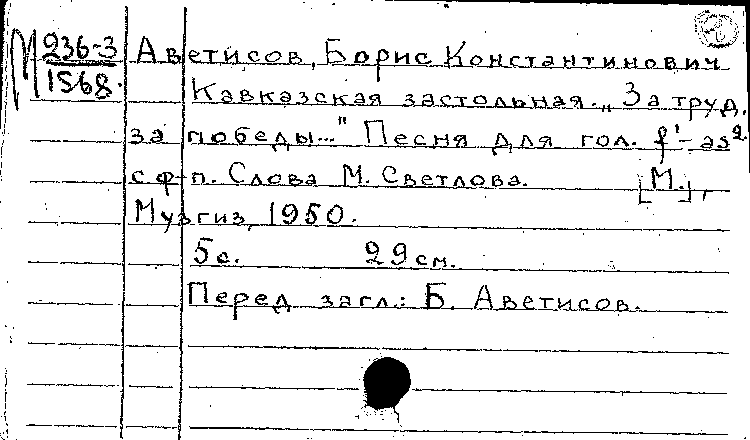 М 236-3
1568.
Аветисов, Борис Константинович
Кавказская застольная. „За труд,
за победы..." Песня для гол. f¹-as²
с ф-п. Слова М. Светлова. [М.],
Музгиз, 1950.
5с. 29см.
Перед загл.: Б. Аветисов.